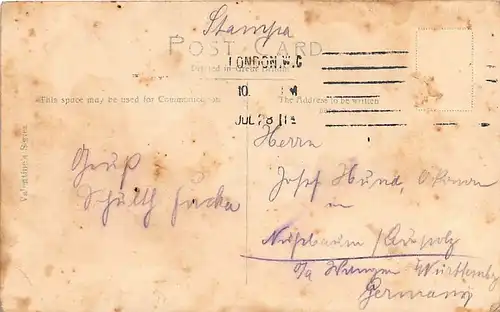 Stampa
POST CARD
Printed in Great Britain
LONDON. W.C
10.
JUL 28 11
This space may be used for Communication
The Address to be written
Valentine's Series
Gruß
Herrn
Josef Hund,
in
a/a Wangen Württemby
Germany